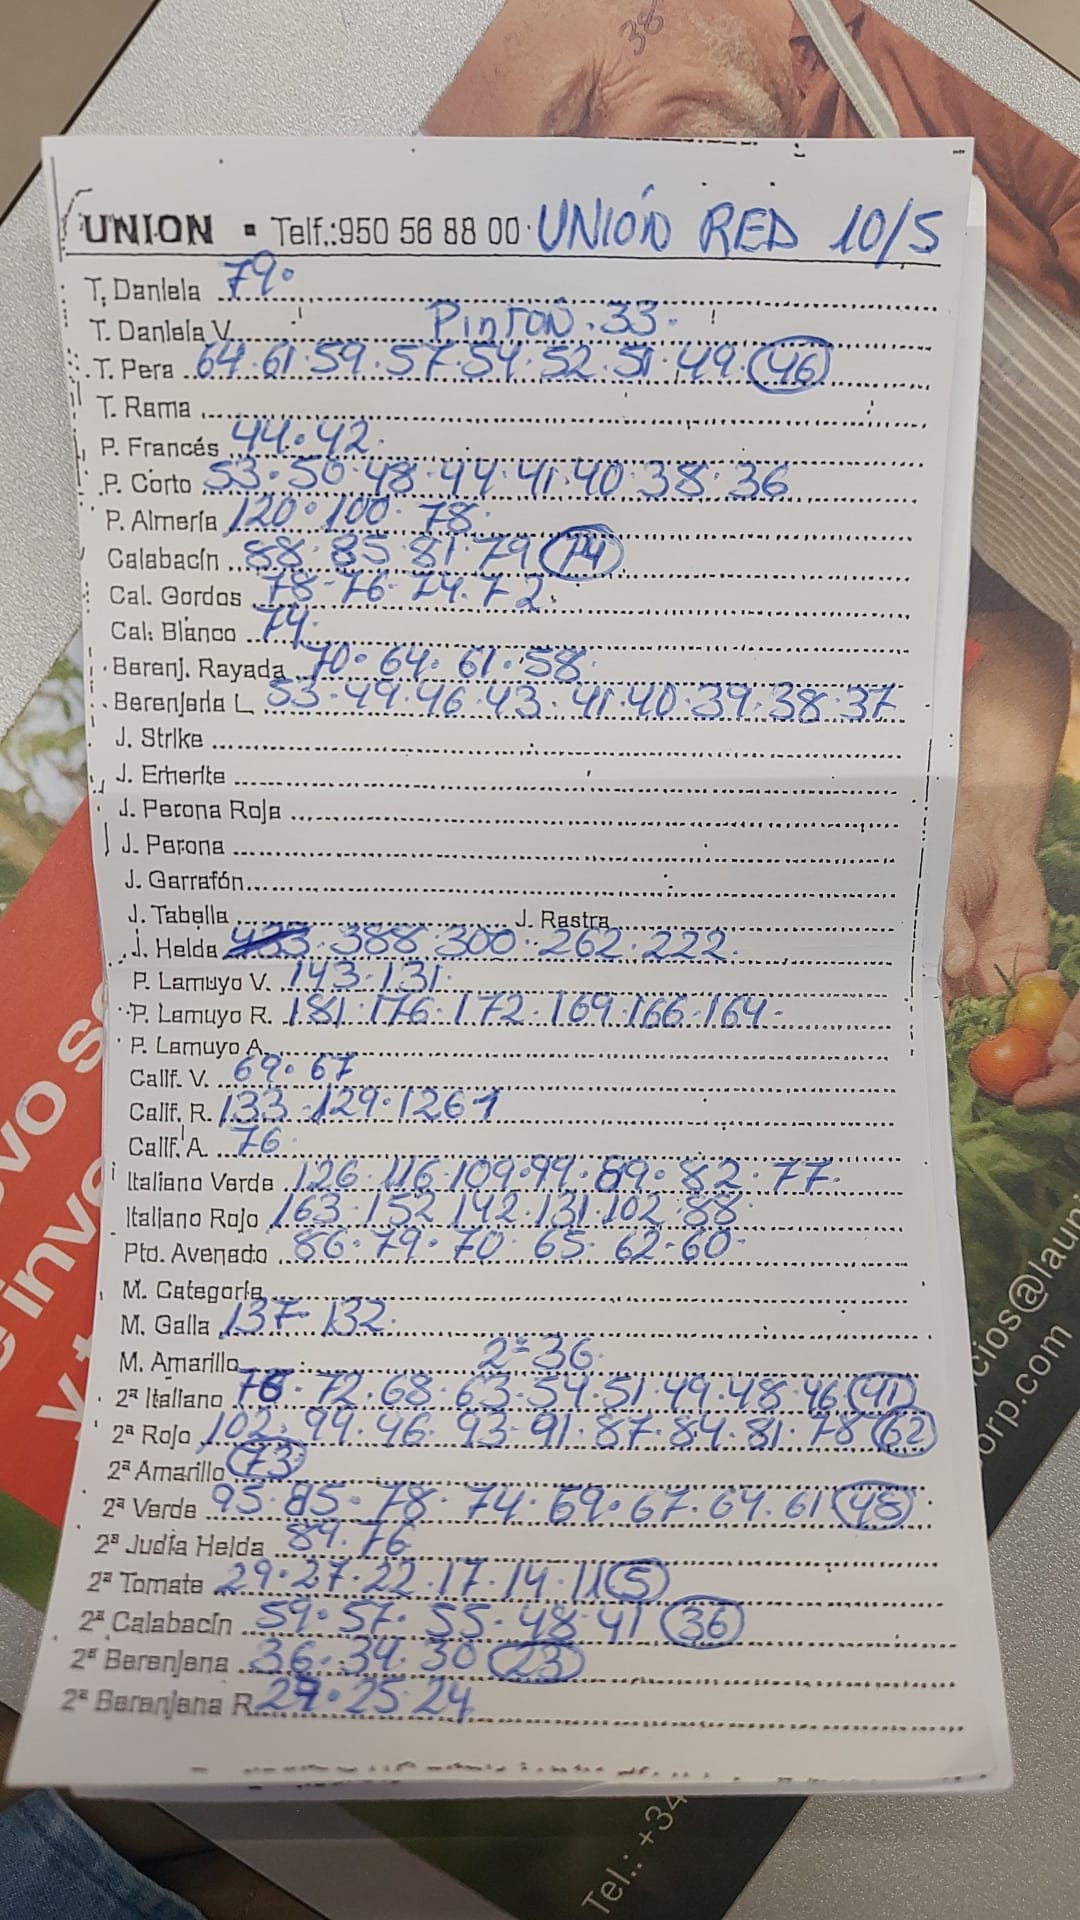 38
UNION - Telf.:950 56 88 00 · UNIÓN RED 10/5
T. Daniela 79.
T. Daniela V. Pintón . 33.
T. Pera 64.61.59.57.54.52.51.49.46
T. Rama
P. Francés 44.42.
P. Corto 53.50.48.44.41.40.38.36
P. Almería 120.100.78.
Calabacín 88.85.81.79 74
Cal. Gordos 78-76.74.72.
Cal. Blanco 74.
Berenj. Rayada 70.64.61.58.
Berenjena L 53.49.46.43.41.40.39.38.37
J. Strike
J. Emerite
J. Perona Roja
J. Perona
J. Garrafón
J. Tabella J. Rastra
J. Helda 433.388 300.262.222.
P. Lamuyo V. 143.131.
P. Lamuyo R. 181.176.172.169.166.164-
P. Lamuyo A.
Calif. V. 69.67
Calif. R. 133-129.126
Calif. A. 76.
Italiano Verde 126.116.109.99.89.82.77.
Italiano Rojo 163.152 142.131.102.88.
Pto. Avenado 86.79.70.65.62-60-
M. Categoría
M. Galia 137-132.
M. Amarillo 2ª 36.
2ª Italiano 76.72.68.63.54.51.49.48.46 41
2ª Rojo 102.99.96.93-91.87.84.81.78 62
2ª Amarillo 73
2ª Verde 95.85-78.74.69.67.64.61 48
2ª Judía Helda 89.76
2ª Tomate 29.27.22.17.14.11 5
2ª Calabacín 59.57.55.48.41 36
2ª Berenjena 36.34.30 23
2ª Berenjena R. 27.25.24
Tel.: +34
orp.com
cios@laun
vo s
inve